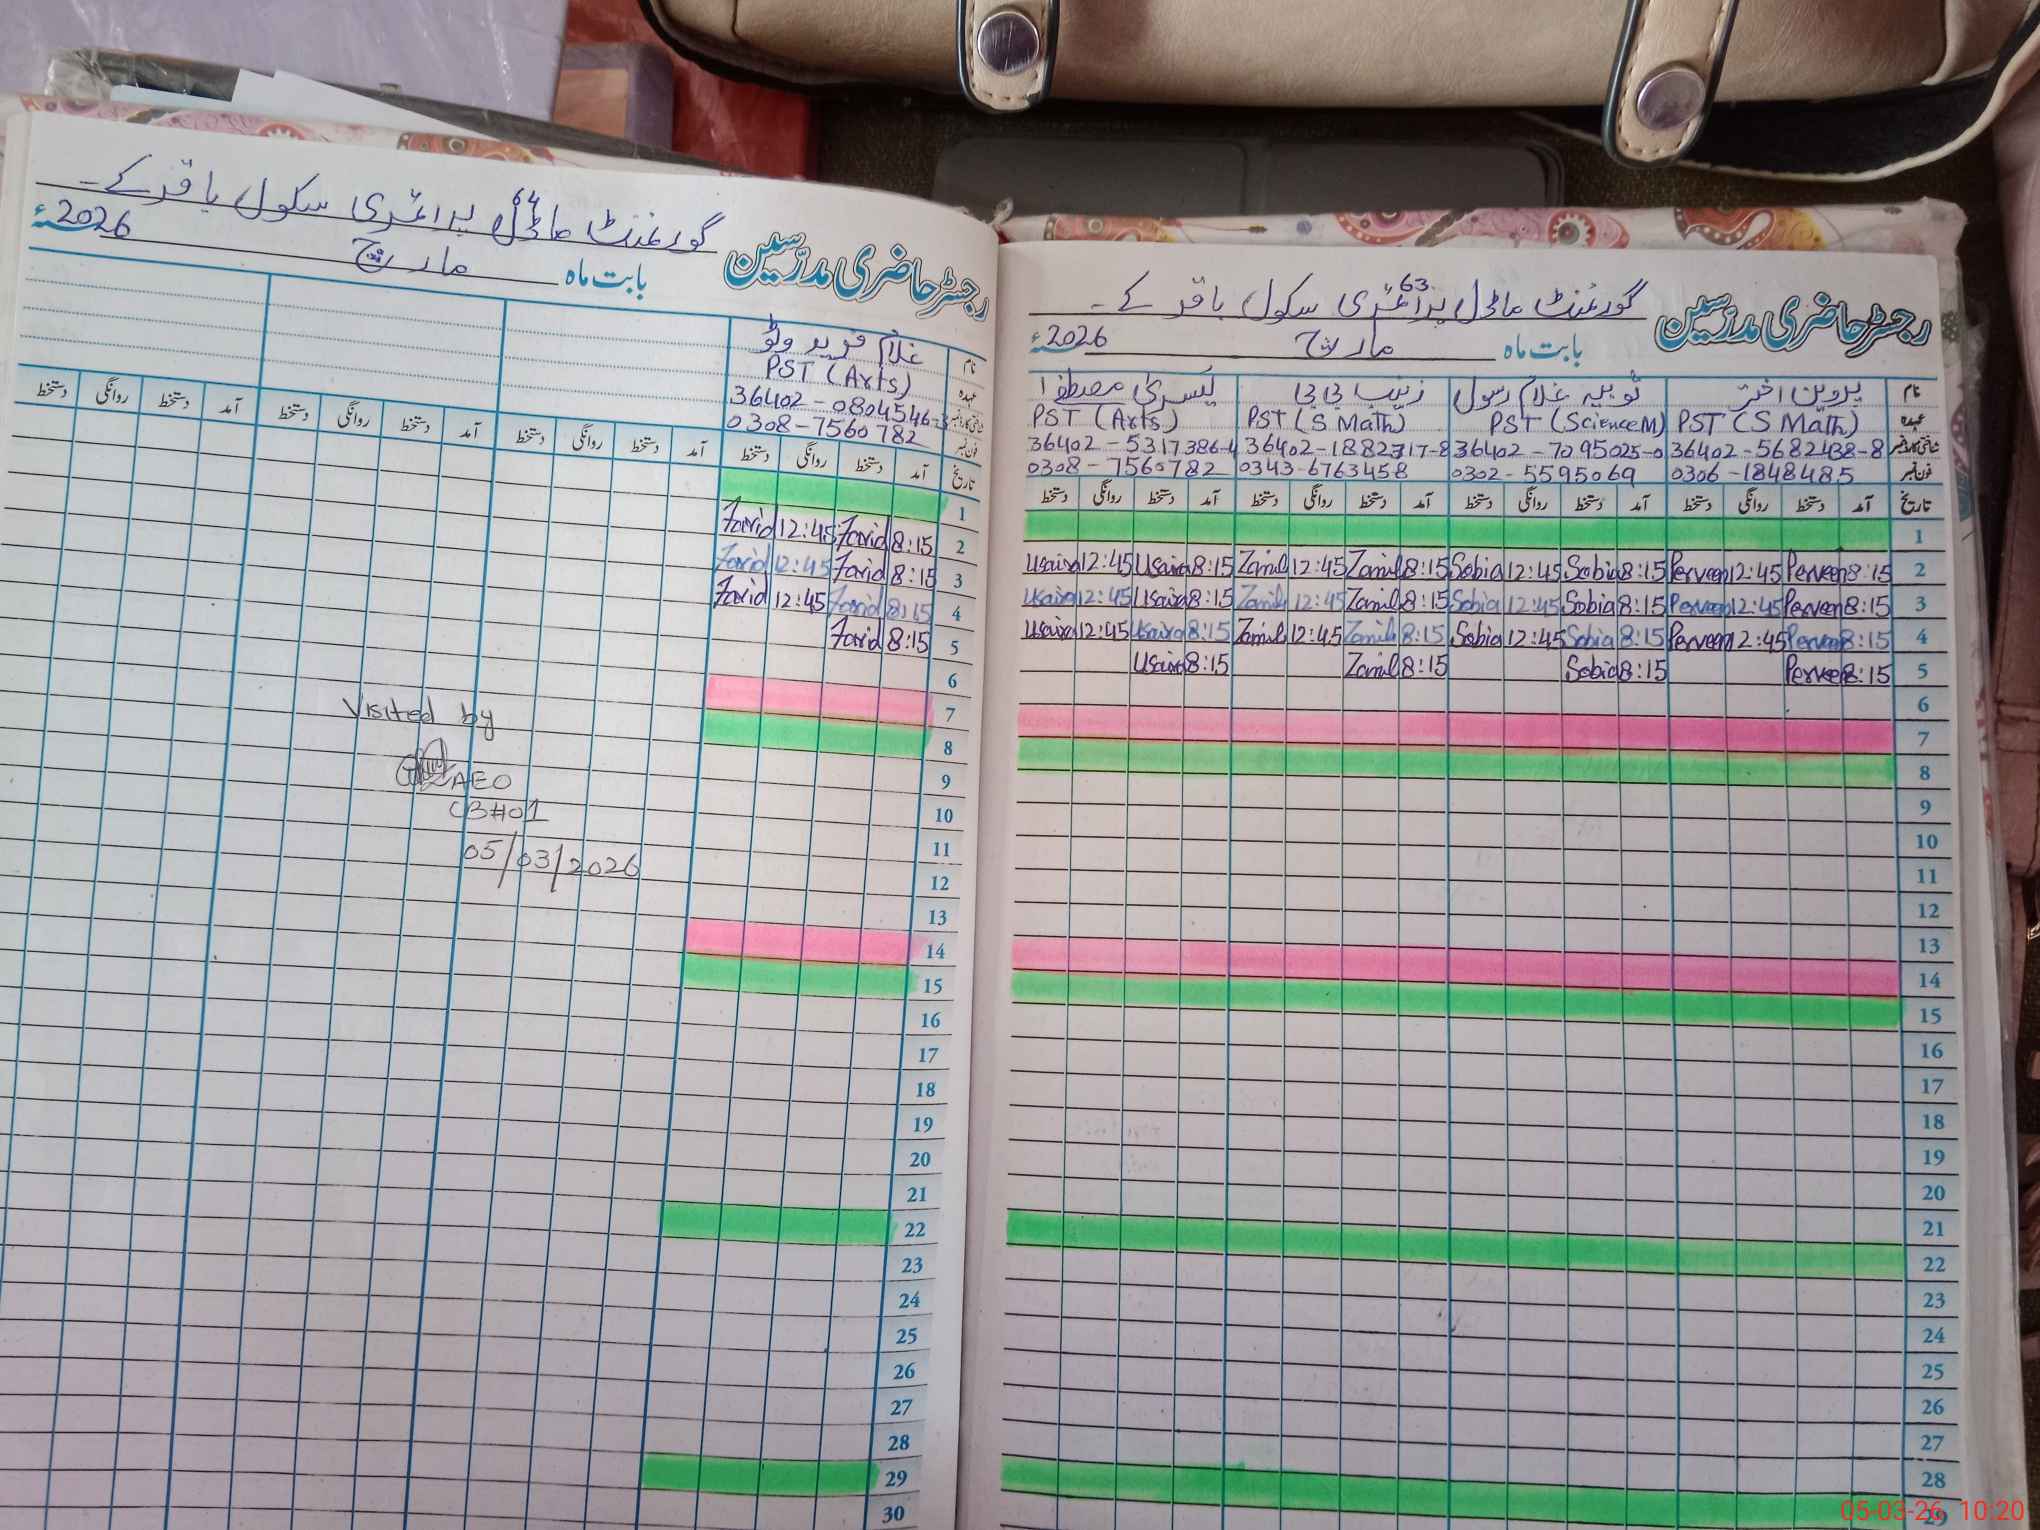 رجسٹر حاضری مدرّسین گورنمنٹ ماڈل پرائمری سکول باقر کے۔
64
بابت ماہ مارچ 2026ء
نام غلام فرید وٹو
عہدہ PST (Arts)
شناختی کارڈ نمبر 36402-0804546-3
فون نمبر 0308-7560782
تاریخ آمد دستخط روانگی دستخط آمد دستخط روانگی دستخط آمد دستخط روانگی دستخط آمد دستخط روانگی دستخط
1
2 8:15 Farid 12:45 Farid
3 8:15 Farid 12:45 Farid
4 8:15 Farid 12:45 Farid
5 8:15 Farid
6
7
8
9
10
11
12
13
14
15
16
17
18
19
20
21
22
23
24
25
26
27
28
29
30
Visited by
AEO
CB#01
05/03/2026
رجسٹر حاضری مدرّسین گورنمنٹ ماڈل پرائمری سکول باقر کے۔
63
بابت ماہ مارچ 2026ء
نام پروین اختر ثوبیہ غلام رسول زینب بی بی یسریٰ مصطفٰے
عہدہ PST (S Math) PST (Science M) PST (S Math) PST (Arts)
شناختی کارڈ نمبر 36402-5682438-8 36402-7095025-0 36402-1882717-8 36402-5317386-4
فون نمبر 0306-1848485 0302-5595069 0343-6763458 0308-7560782
تاریخ آمد دستخط روانگی دستخط آمد دستخط روانگی دستخط آمد دستخط روانگی دستخط آمد دستخط روانگی دستخط
1
2 8:15 Perveen 12:45 Perveen 8:15 Sobia 12:45 Sobia 8:15 Zainib 12:45 Zainib 8:15 Usaira 12:45 Usaira
3 8:15 Perveen 12:45 Perveen 8:15 Sobia 12:45 Sobia 8:15 Zainib 12:45 Zainib 8:15 Usaira 12:45 Usaira
4 8:15 Perveen 12:45 Perveen 8:15 Sobia 12:45 Sobia 8:15 Zainib 12:45 Zainib 8:15 Usaira 12:45 Usaira
5 8:15 Perveen 8:15 Sobia 8:15 Zainib 8:15 Usaira
6
7
8
9
10
11
12
13
14
15
16
17
18
19
20
21
22
23
24
25
26
27
28
29
05-03-26 10:20